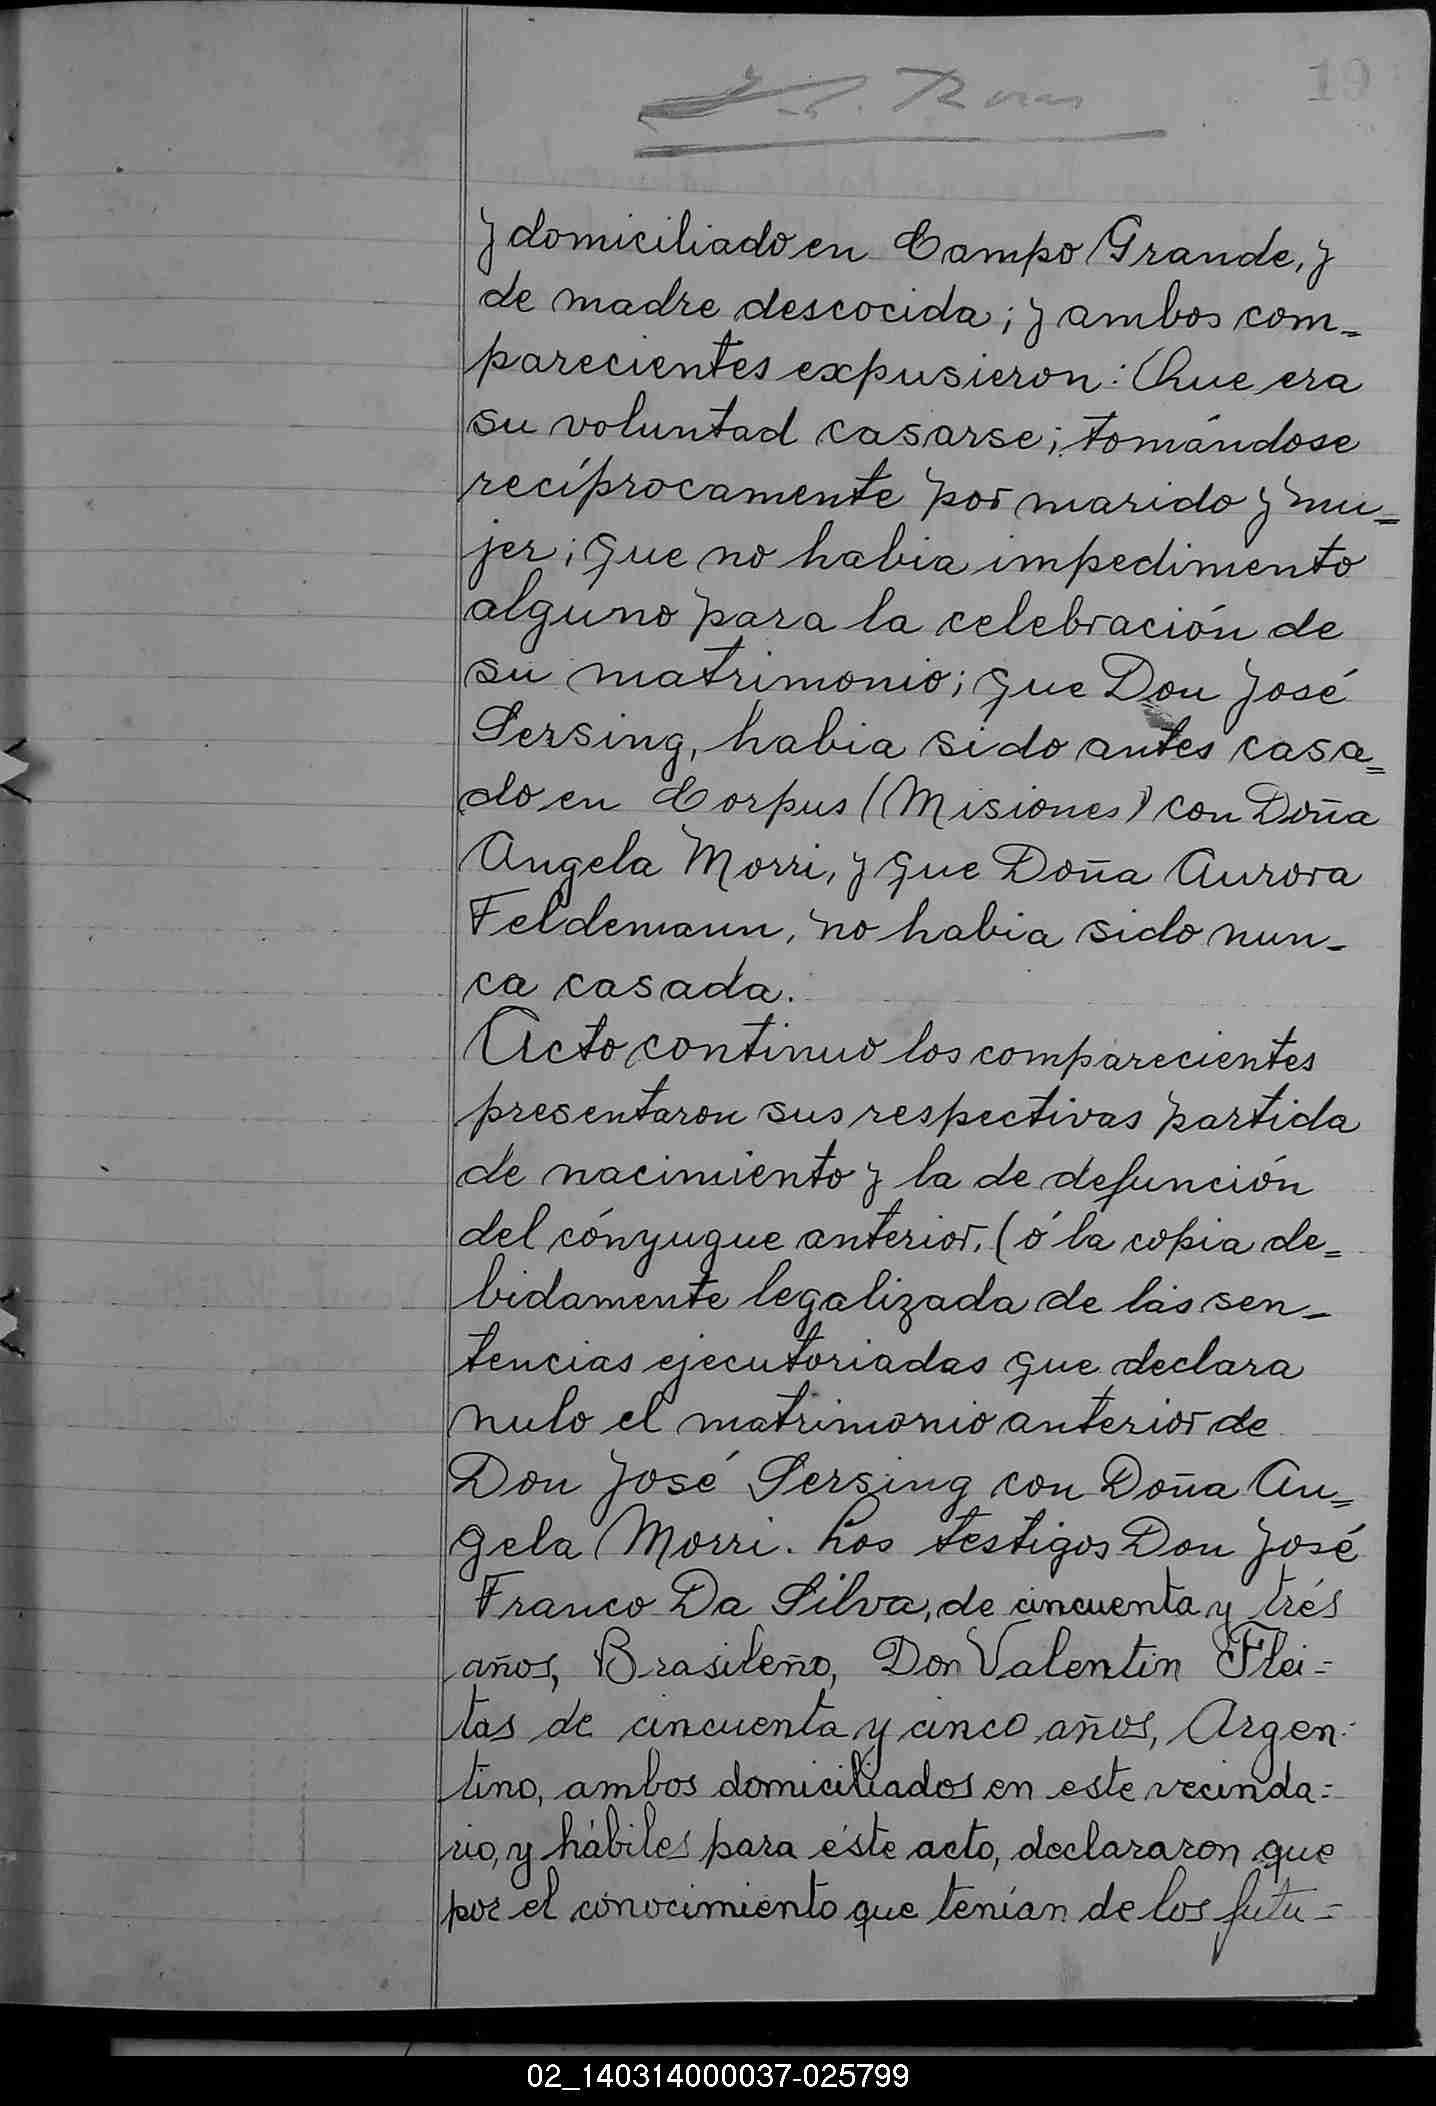 19
y domiciliado en Campo Grande, y
de madre descocida; y ambos com=
parecientes expusieron: Que era
su voluntad casarse; tomándose
recíprocamente por marido y mu=
jer; que no habia impedimento
alguno para la celebración de
su matrimonio; que Don José
Sersing, habia sido antes casa=
do en Corpus (Misiones) con Doña
Angela Morri, y que Doña Aurora
Feldemann, no habia sido nun-
ca casada.
Acto continuo los comparecientes
presentaron sus respectivas partida
de nacimiento y la de defunción
del cónyugue anterior, (ó la copia de=
bidamente legalizada de las sen-
tencias ejecutoriadas que declara
nulo el matrimonio anterior de
Don José Sersing con Doña An=
gela Morri. Los testigos Don José
Franco Da Silva, de cincuenta y trés
años, Brasileño, Don Valentin Flei=
tas de cincuenta y cinco años, Argen=
tino, ambos domiciliados en este vecinda=
rio, y hábiles para éste acto, declararon que
por el conocimiento que tenían de los futu=
02_140314000037-025799